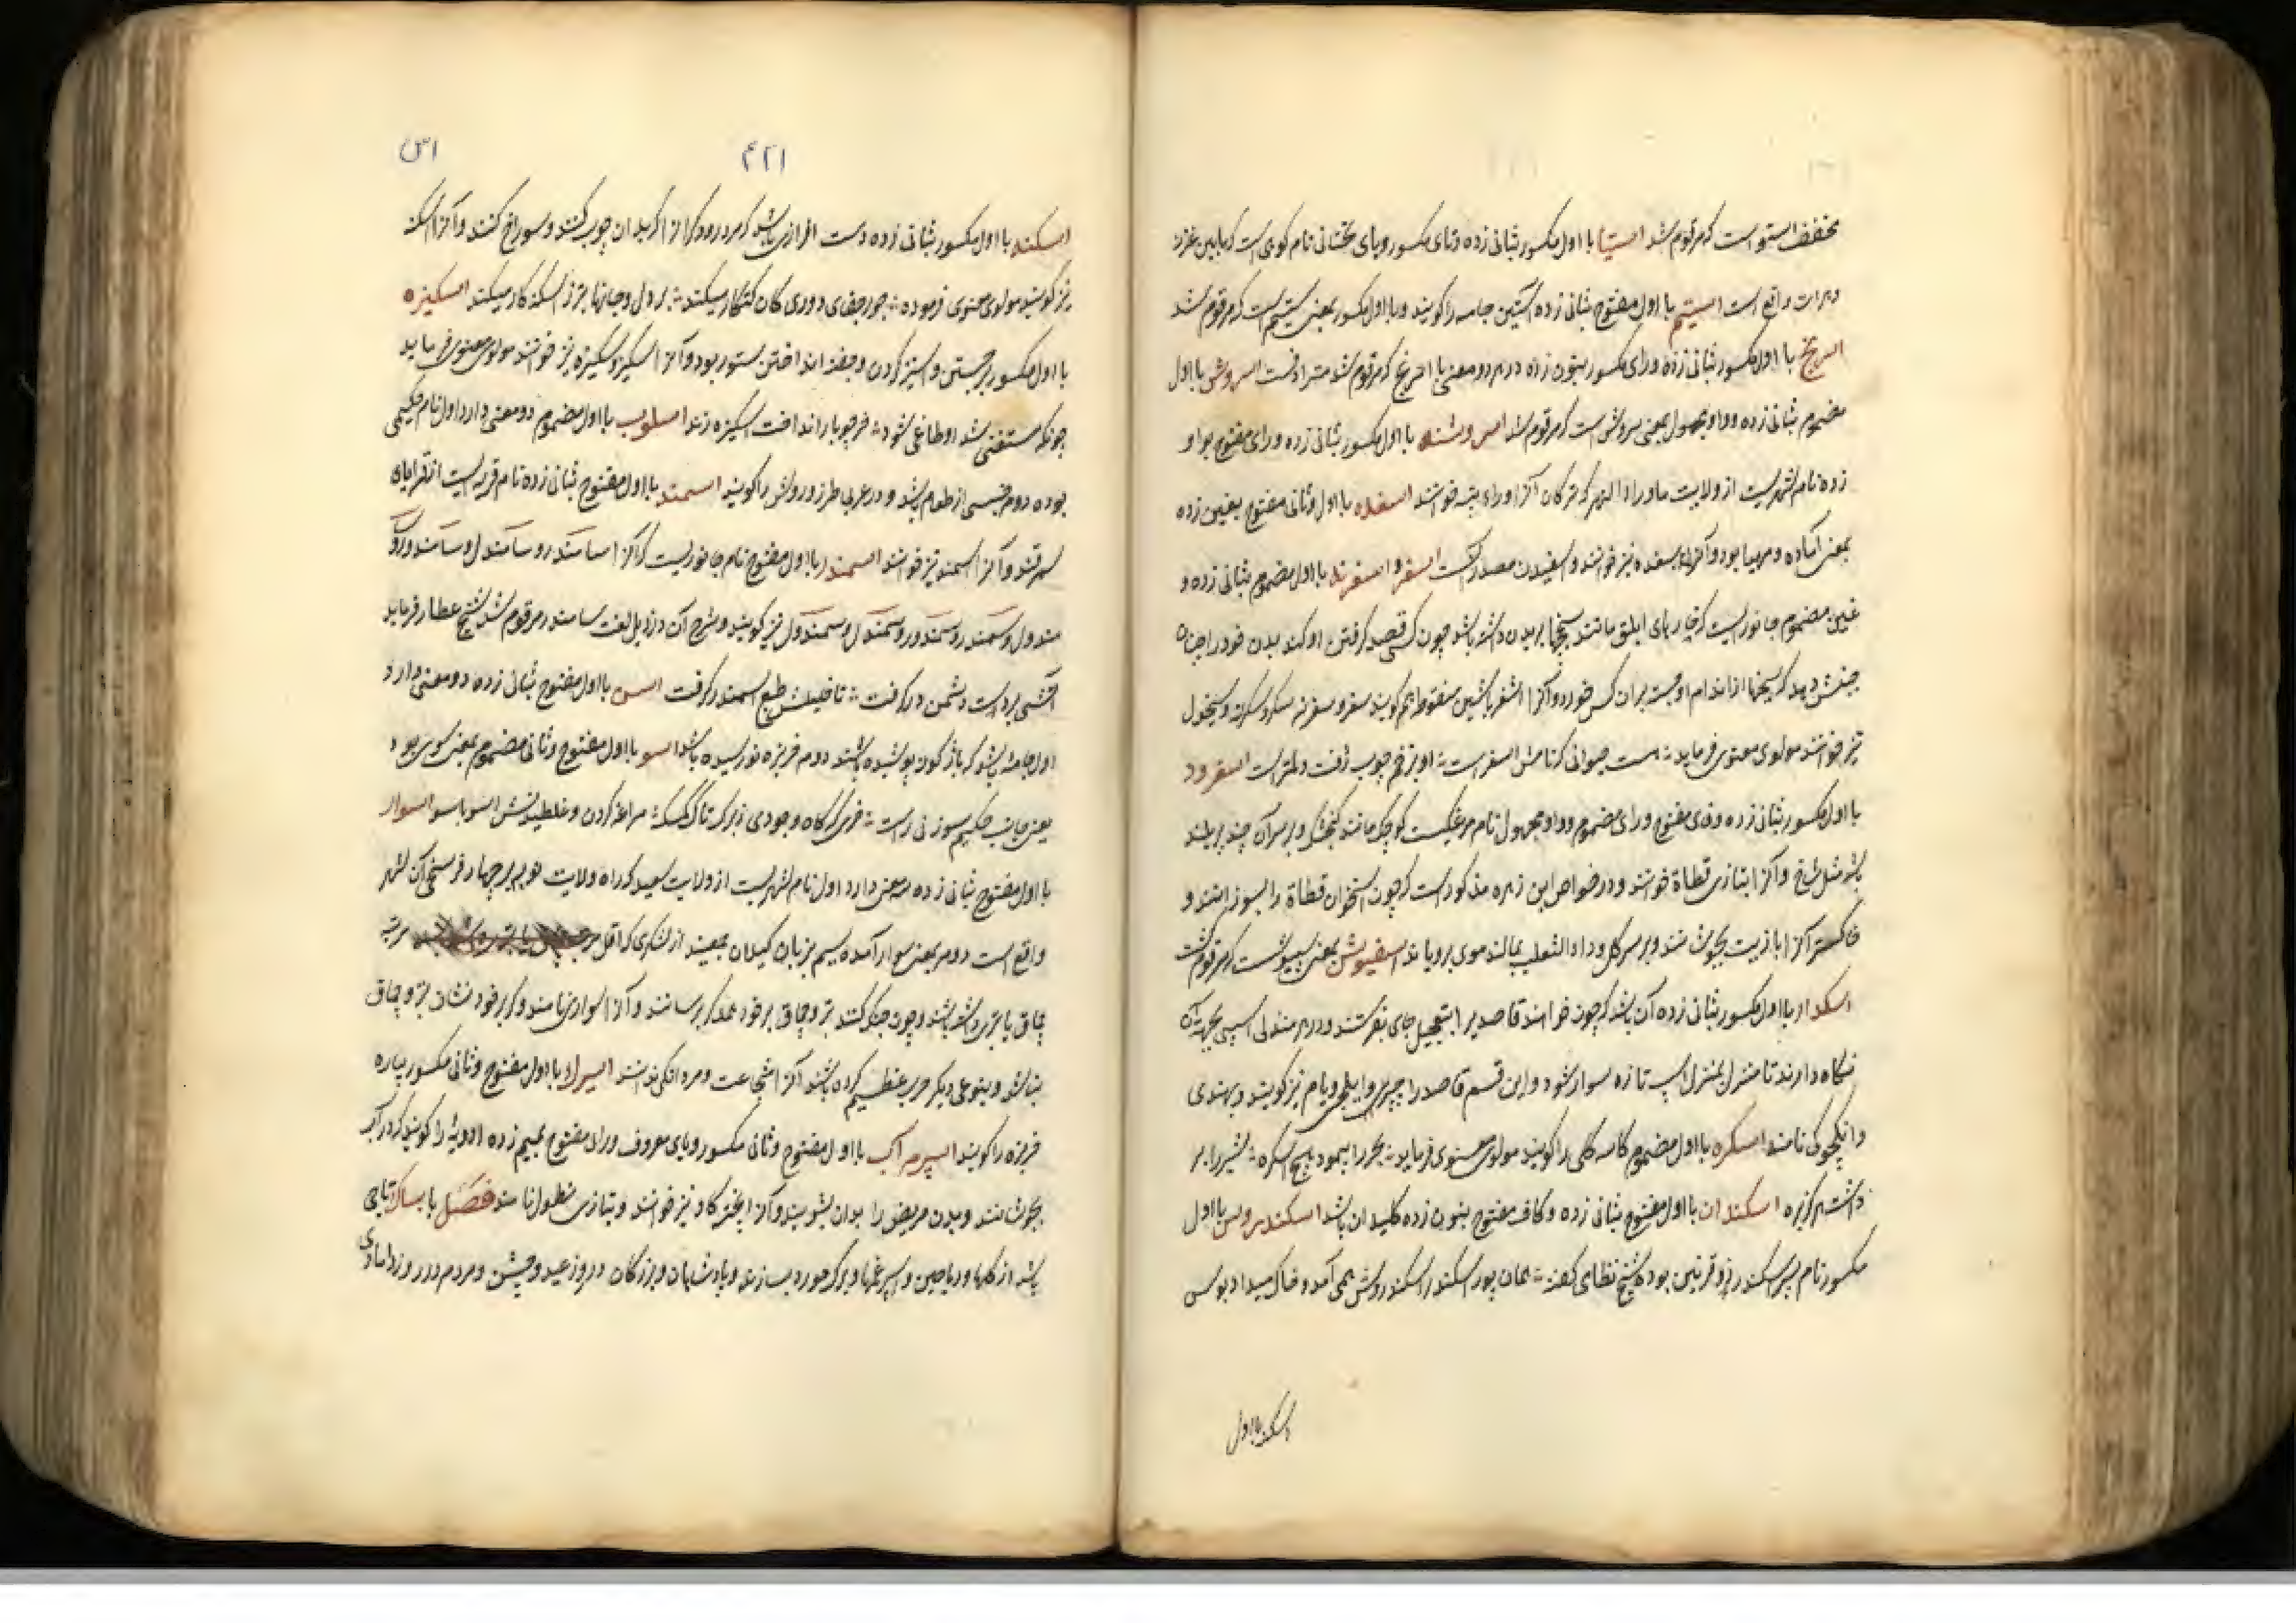 مخفف استو است که مرقوم شد استیا با اول مکسور بثانی زده و تای مکسور و یای تحتانی نام کوهی است که مابین غزنه
و هرات واقع است استیم با اول مفتوح بثانی زده آستین جامه را گویند و با اول مکسور بمعنی ستیم است که مرقوم شد
اسرنج با اول مکسور بثانی زده و رای مکسور بنون زده در هر دو معنی با اسرنج که مرقوم شد مترادفست اسروش با اول
مضموم بثانی زده و واو مجهول بمعنی سروش است که مرقوم شد اسروشنه با اول مکسور بثانی زده و رای مفتوح بواو
زده نام شهریست از ولایت ماوراء النهر که ترکان آنرا اوراءتپه خوانند اسغده با اول و ثانی مفتوح بغین زده
بمعنی آماده و مهیا بود و آنرا بسغده نیز خوانند و سغیدن مصدر آنست اسغر و اسغرنه با اول مضموم بثانی زده و
غین مضموم جانوریست که خارهای ابلق مانند سیخها بر بدن داشته باشد چون کسی قصد گرفتن او کند بدن خود را چنان
جنبش دهد که سیخها از اندام او جسته بران کس خورد و آنرا اشغر با شین منقوطه هم گویند سغر و سغرنه سکر و سکرنه و سیخول
نیز خوانند مولوی معنوی فرماید هست حیوانی که نامش اسغر است او بزخم چوب زفت و لمتر است اسفرود
با اول مکسور بثانی زده و فای مفتوح و رای مضموم و واو مجهول نام مرغیست کوچک مانند گنجشک و بر سر آن چند پر بلند
باشد مثل شاخ و آنرا بتازی قطاة خوانند و در خواص ابن زهره مذکور است که چون استخوان قطاة را بسوزانند و
خاکستر آنرا با زیت بجوشانند و بر سر کل و داء الثعلب بمالند موی برویاند اسفیوش بمعنی سبیوش است که مرقوم گشت
اسکدار با اول مکسور بثانی زده آن باشد که چون خواهند قاصدیرا بتعجیل جای بفرستند و در هر منزلی اسپی بجهة آن
نگاه دارند تا منزل بمنزل اسپ تازه سوار شود و این قسم قاصد را چپر و ایلچی و یام نیز گویند و بهندی
داکچوکی نامند اسکره با اول مضموم کاسه گلی را گویند مولوی معنوی فرماید بحر را پیمود هیچ اسکره شیر را بر
داشت هرگز بره اسکندان با اول مفتوح بثانی زده و کاف مفتوح بنون زده کلیدان باشد اسکندروس با اول
مکسور نام پسر سکندر ذو قرنین بوده شیخ نظامی گفته همان پور اسکندر اسکندروش همی آمد و خاک میداد بوس
اسکنه با اول
۴۲۱
اس
اسکنه با اول مکسور بثانی زده دست افزاری باشد که مر درودکرانرا که بدان چوب کنند و سوراخ کنند و آنرا سکنه
نیز گویند مولوی معنوی فرموده جور و جفای دوری کان کنکار میکند بر دل و جانها بتر ز اسکنه کار میکند اسکیزه
با اول مکسور برجستن و اسیز کردن و جفته انداختن ستور بود و آنرا اسکیز و سکیزه نیز خوانند مولوی معنوی فرماید
چونکه مستغنی شد او طاغی شود خر چو بار انداخت اسکیزه زند اسلوب با اول مضموم دو معنی دارد اول نام حکیمی
بوده دوم جنسی از طعام باشد و در عربی طرز و روش را گویند اسمند با اول مفتوح بثانی زده نام قریه ایست از قرایای
سمرقند و آنرا سمند نیز خوانند اسمندر با اول مفتوح نام جانوریست که آنرا سامندر و سامندل و سامندور و
سمندول و سمندر و سمندور و سمندل و سمندول نیز گویند و شرح آن در ذیل لغت سامندر مرقوم شد شیخ عطار فرماید
آتشی بر دست دشمن در گرفت تا خلیلش طبع اسمندر گرفت اسن با اول مفتوح بثانی زده دو معنی دارد
اول جامه باشد که باژگون پوشیده باشند دوم خربزه نورسیده باشد اسو با اول مفتوح و ثانی مضموم بمعنی سوی بود
یعنی جانب حکیم سوزنی راست اسوار
با اول مفتوح بثانی زده سه معنی دارد اول نام شهریست از ولایت صعید که راه ولایت نوبه بر چهار فرسخی آن شهر
واقع است دوم بمعنی سوار آمده سیم بزبان گیلان جمعیند از لشکری که اقل مرتبه
چماق یا تبر داشته باشند و چون جنگ کنند تبر و چماق بر خود عمداً برسانند و آنرا اسواری نامند و گر بر خود نشان تبر و چماق
نباشد و بنوعی دیگر حرب عظیم کرده باشند آنرا شجاعت و مردانگی ندانند اسیرک با اول مفتوح و ثانی مکسور پاره
خربزه را گویند اسپرم آب با اول مفتوح و ثانی مکسور و یای معروف و رای مفتوح بمیم زده ادویه را گویند که در آب
بجوشانند و بدن مریض را بدان بشویند و آنرا ابخته گاو نیز خوانند و بتازی نطول نامند فصل با بساک تاجی
باشد از گلها و ریاحین و اسپرغمها و برگ مورد بسازند و پادشاهان و بزرگان در روز عید و جشن و مردم در روز دامادی